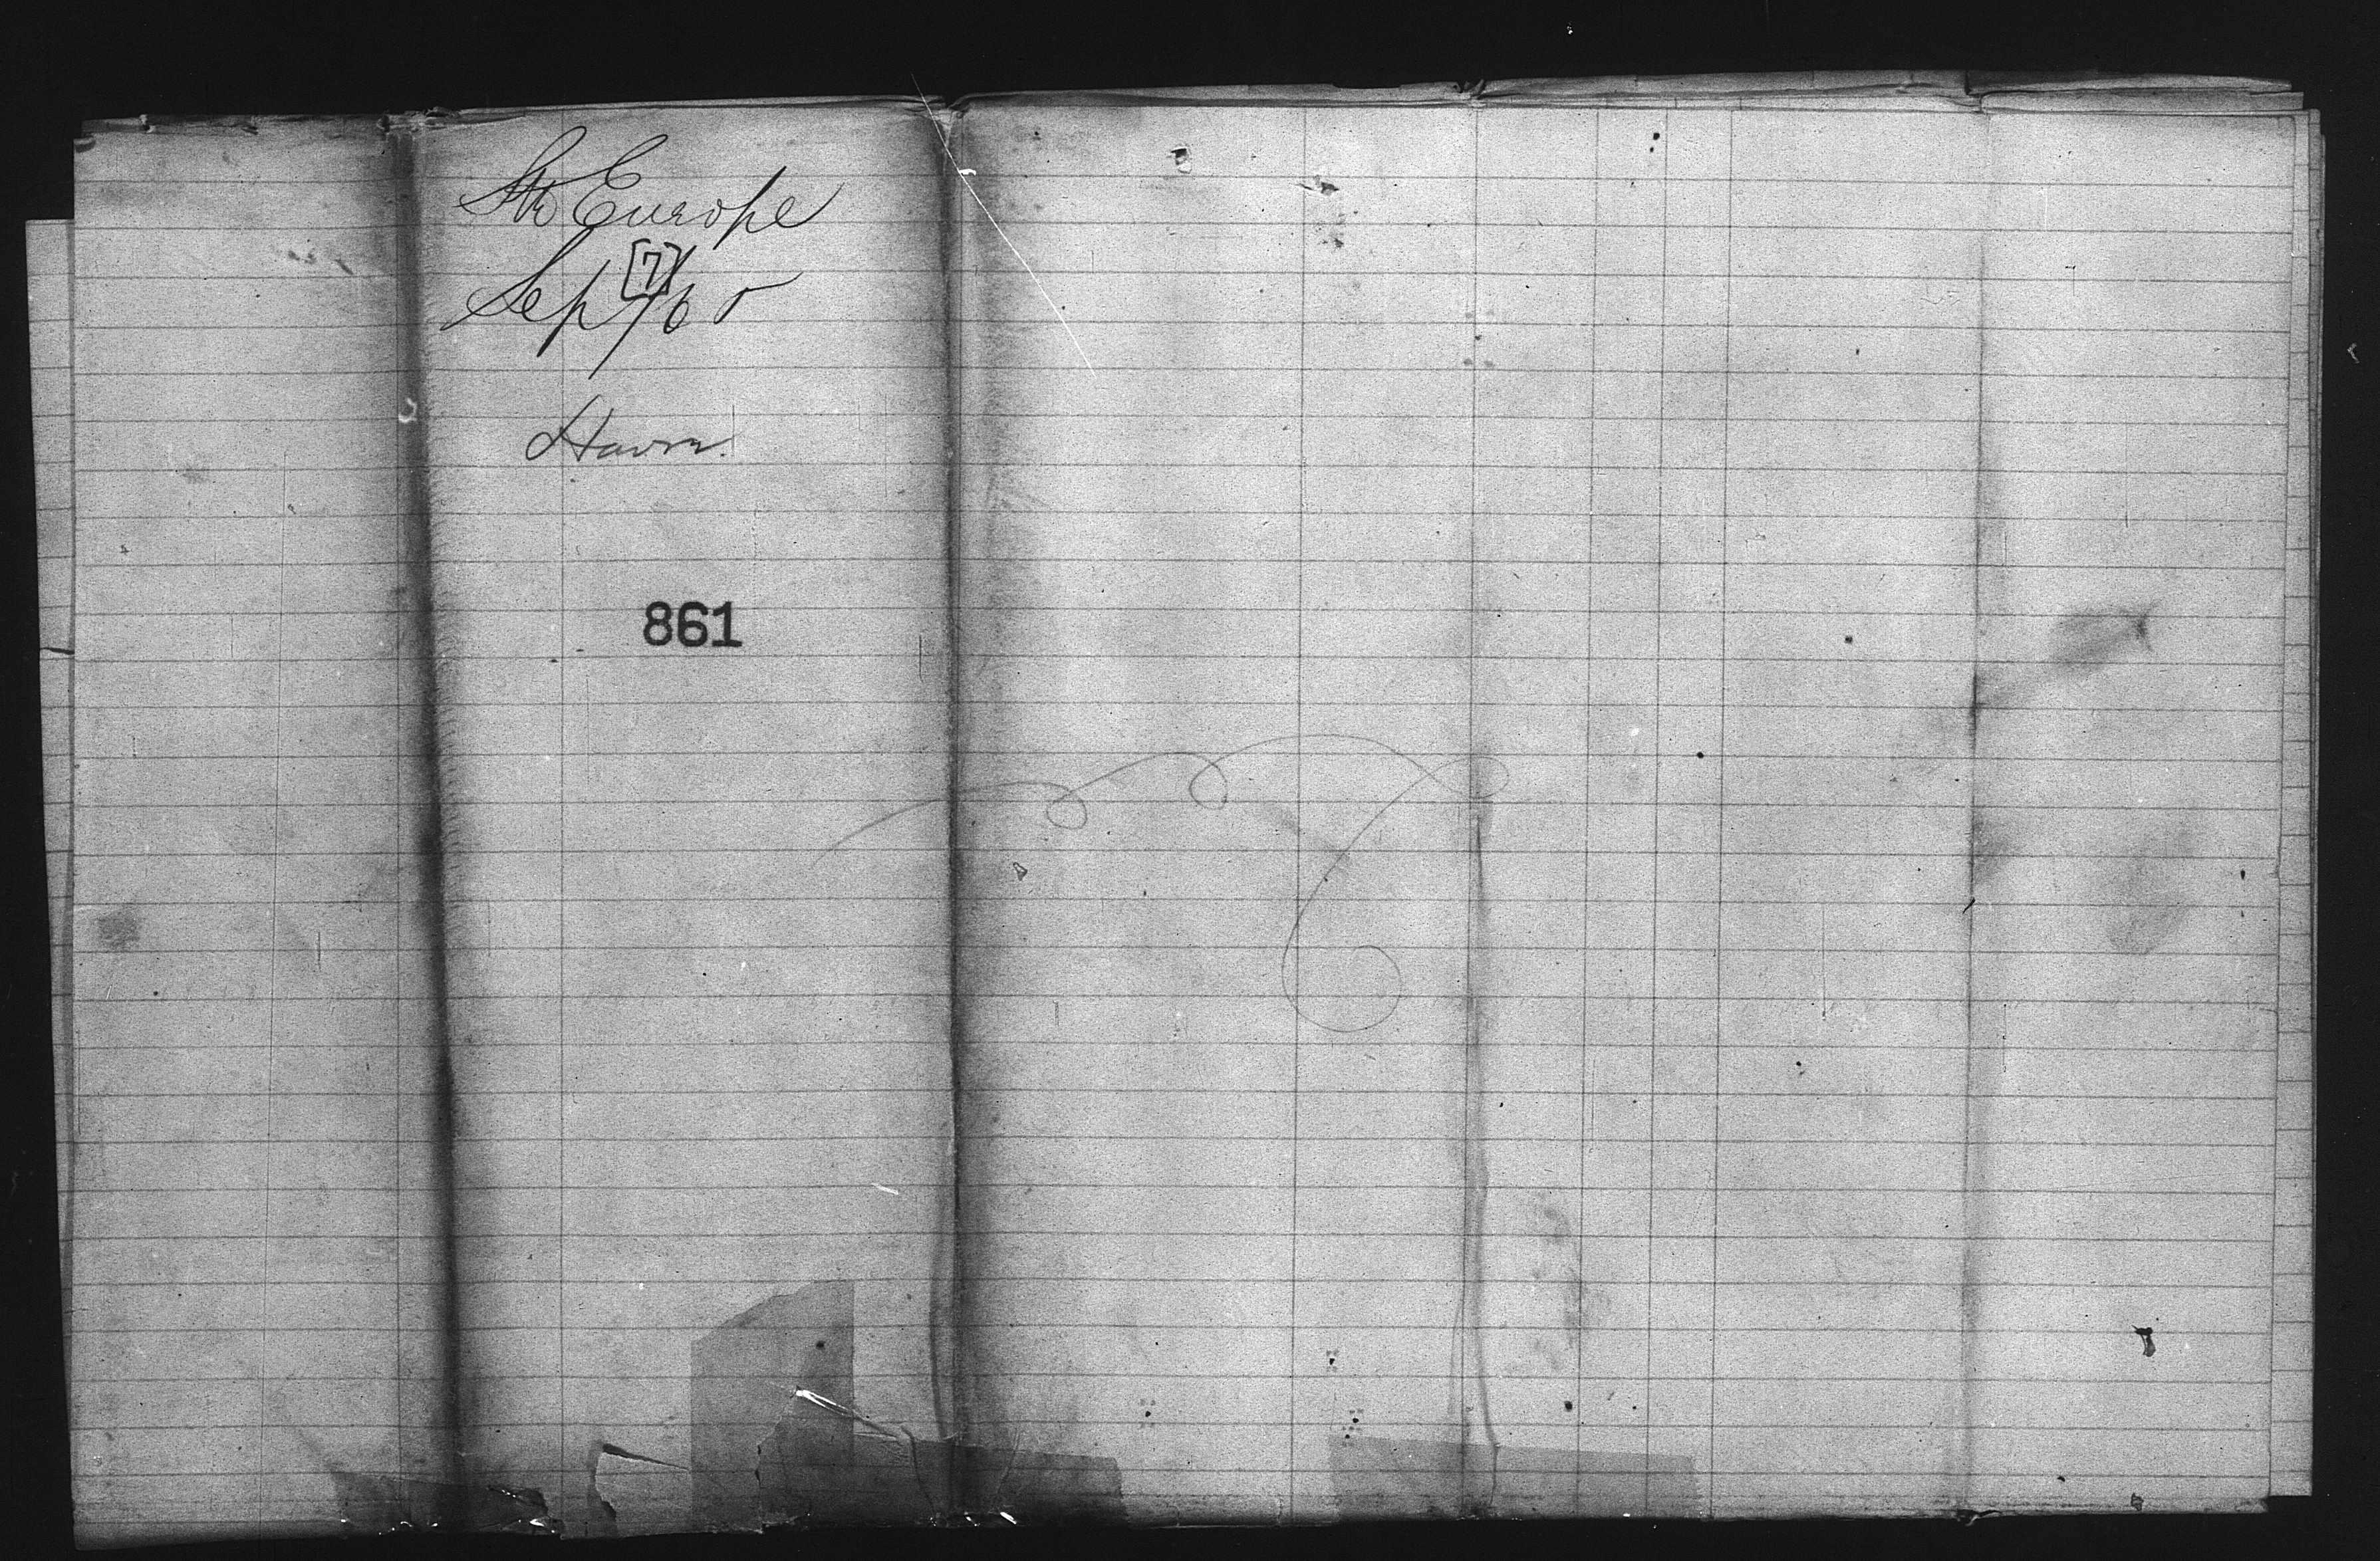 Str Europe
Sep 7/65
[7]
Havre
861